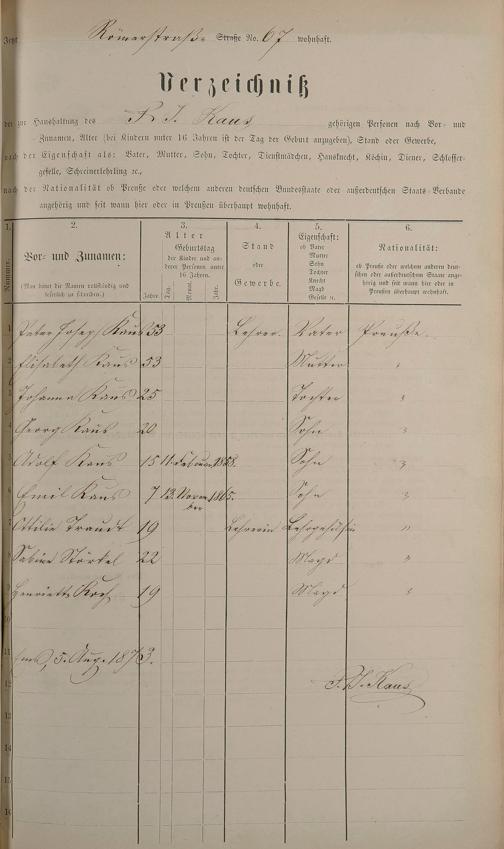 Jetzt Römerstraße Straße No. 67 wohnhaft.
Verzeichniß
der zur Haushaltung des P. J. Kaus gehörigen Personen nach Vor- und
Zunamen, Alter (bei Kindern unter 16 Jahren ist der Tag der Geburt anzugeben), Stand oder Gewerbe,
nach der Eigenschaft als: Vater, Mutter, Sohn, Tochter, Dienstmädchen, Hausknecht, Köchin, Diener, Schlosser-
geselle, Schreinerlehrling ꝛc.,
nach der Nationalität ob Preuße oder welchem anderen deutschen Bundesstaate oder außerdeutschen Staats-Verbande
angehörig und seit wann hier oder in Preußen überhaupt wohnhaft.
1. 2. 3. 4. 5. 6.
Nummer.
Vor- und Zunamen:
(Man bittet die Namen vollständig und
leserlich zu schreiben.)
Alter
Geburtstag
der Kinder und an-
derer Personen unter
16 Jahren.
Jahre Tag. Monat. Jahr.
Stand
oder
Gewerbe.
Eigenschaft:
ob Vater
Mutter
Sohn
Tochter
Knecht
Magd
Geselle ꝛc.
Nationalität:
ob Preuße oder welchem anderen deut-
schen oder außerdeutschen Staate ange-
hörig und seit wann hier oder in
Preußen überhaupt wohnhaft.
1 Peter Joseph Kaus 53 Lehrer. Vater Preuße.
2 Elisabeth Kaus 53 Mutter "
3 Johanna Kaus 25 Tochter "
4 Georg Kaus 20 Sohn "
5 Adolf Kaus 15 11. Februar 1858. Sohn "
6 Emil Kaus 7 12. Novem 1865. Sohn "
ber
7 Ottilie Traudt 19 Lehrerin "
8 Sabine Störkel 22 Magd "
9 Henriette Koch 19 Magd "
10
11 Ems, 5. Aug. 1873.
12 P. J. Kaus
13
14
15
16